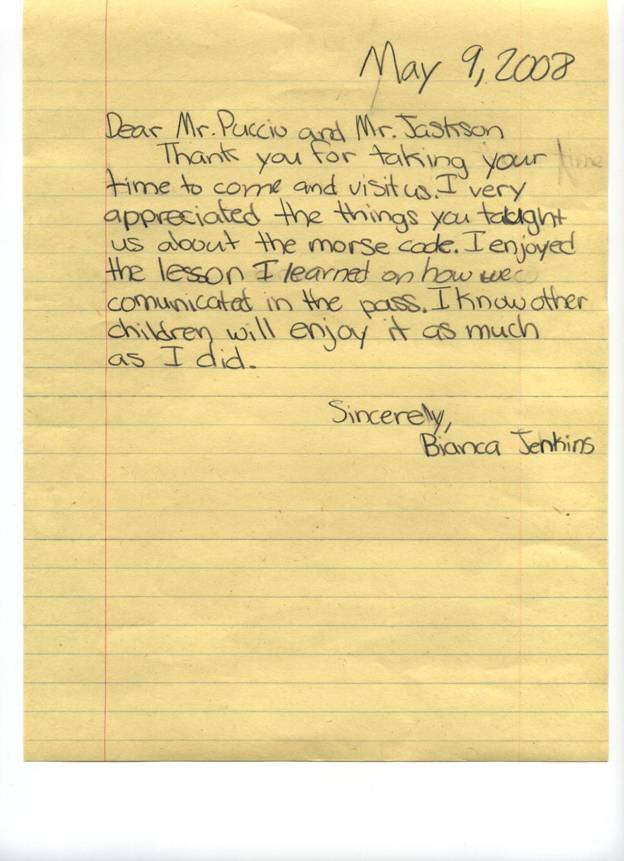 May 9, 2008
Dear Mr. Puccio and Mr. Jaskson
Thank you for taking your
time to come and visit us. I very
appreciated the things you taught
us about the morse code. I enjoyed
the lesson I learned on how we
comunicated in the pass. I know other
children will enjoy it as much
as I did.
Sincerely,
Bianca Jenkins